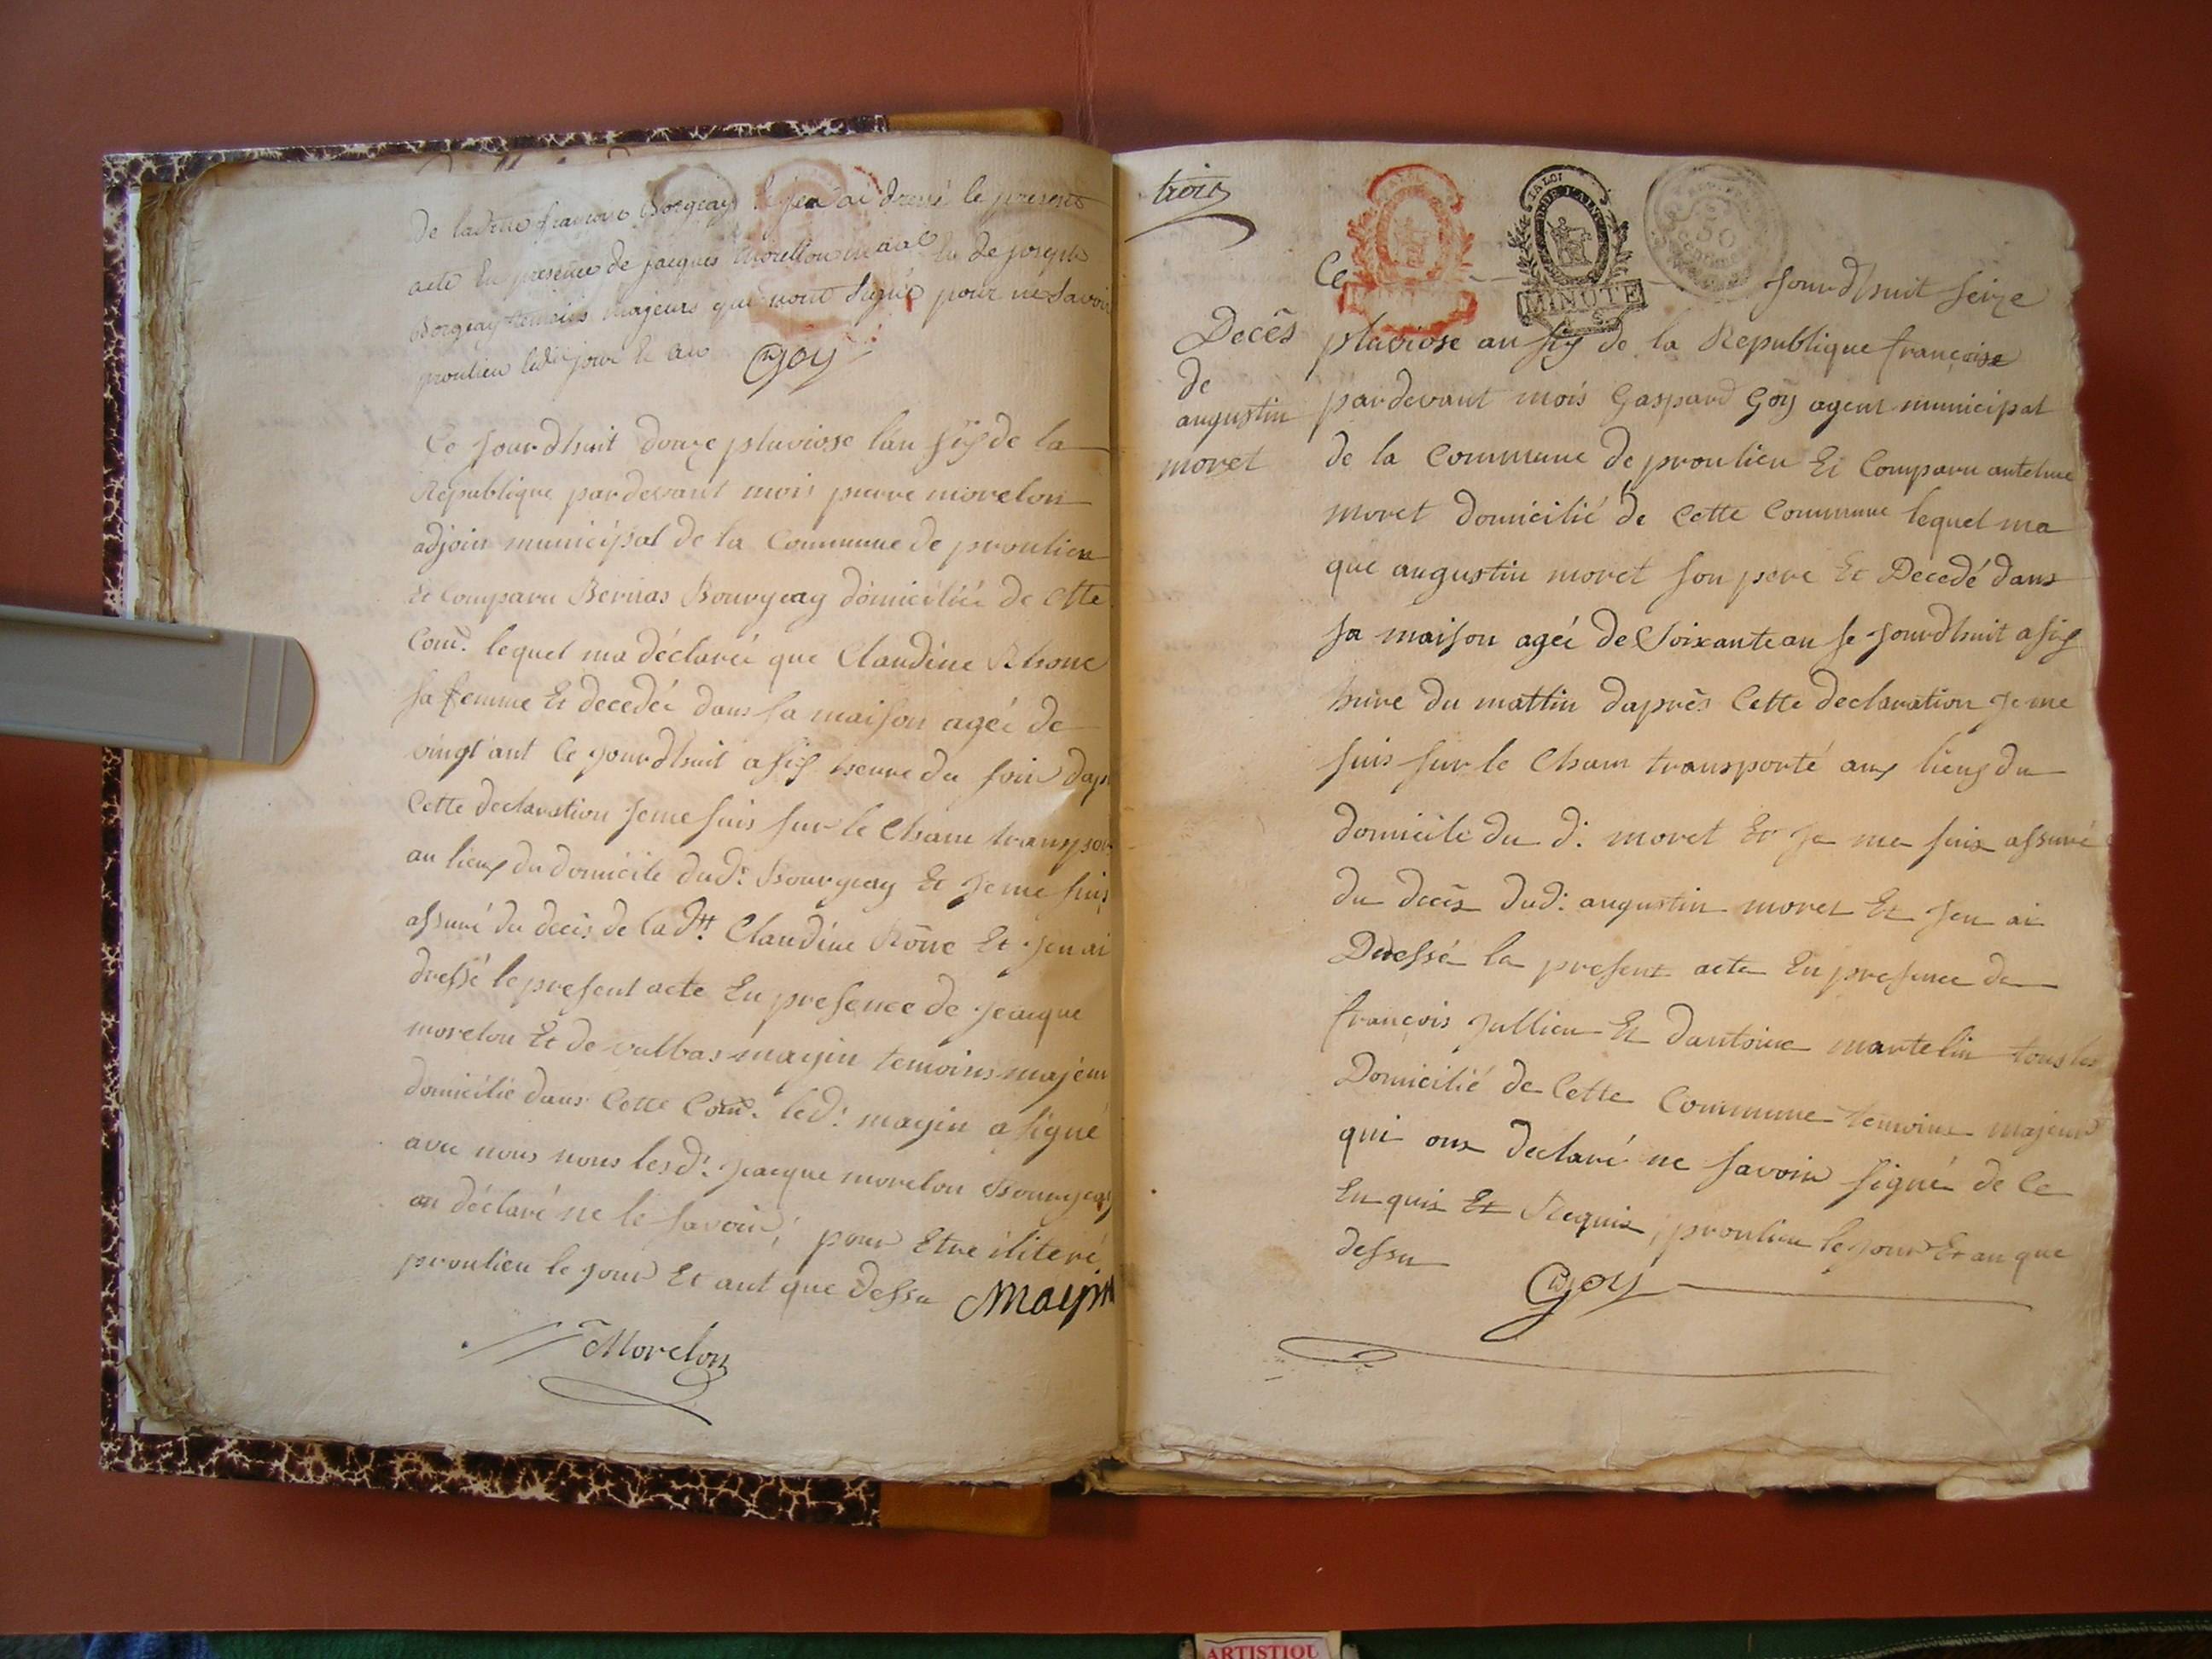 De ladite françoise Borgeay et jen ai dressé le present
acte En presence de jacques morellon maal Et de joseph
Borgeay temoins majeurs qui nont Signé pour ne Savoir
proulieu led. jour et an Goy
Ce Jourdhuit douze pluviose l'an six de la
Republique pardevant mois pierre morelon
adjoin municipal de la Commune de proulieu
Et Comparu Bernas Bourgeay domiciliée de Cette
Com.e lequel ma déclarée que Claudine Rhone
sa femme Et decedée dans sa maison agée de
vingt ant Ce jourdhuit a six heure du soir dap
Cette declarstion Jeme suis sur le Cham transpor
au lieux du domicile dud.t Bourgeay Et Jeme suis
assuré du decès de lad.tt Claudine Rône Et Jen ai
dressé le present acte En presence de jeacque
morelon Et de vulbas mayin temoins majeur
domicilié dans Cette Com.e led.t mayin a signé
avec nous nous lesd.t jeacque morelon Bourgeay
on déclaré ne le savoir, pour Etre iliteré
proulieu le jour Et ant que dessu Mayin
Morelon
trois
Ce Jourdhuit seize
LA LOI
MINUTE
50
centimes
Decês
de
augustin
moret
pluviose an six de la Republique françoise
pardevant mois Gaspard Goÿ agent municipal
de la Commune de proulieu Et Comparu antelme
moret domicilié de Cette Commune lequel ma
que augustin moret son pere Et Decedé dans
sa maison agée de Soixante an se Jourdhuit a six
hure du mattin daprês Cette declaration Jeme
suis sur le Cham transporté aux lieux du
domicile du d.t moret Et Je me suis assuré
du decês dud.t augustin moret Et Jen ai
Dressé la present acte En presence de
françois jullien Et dantoine martelin tous les
Domicilié de Cette Commune temoins majeurs
qui ons declaré ne savoir signé de Ce
Enquis Et Requis, proulieu le jour Et an que
dessu
Goy
ARTISTIQU